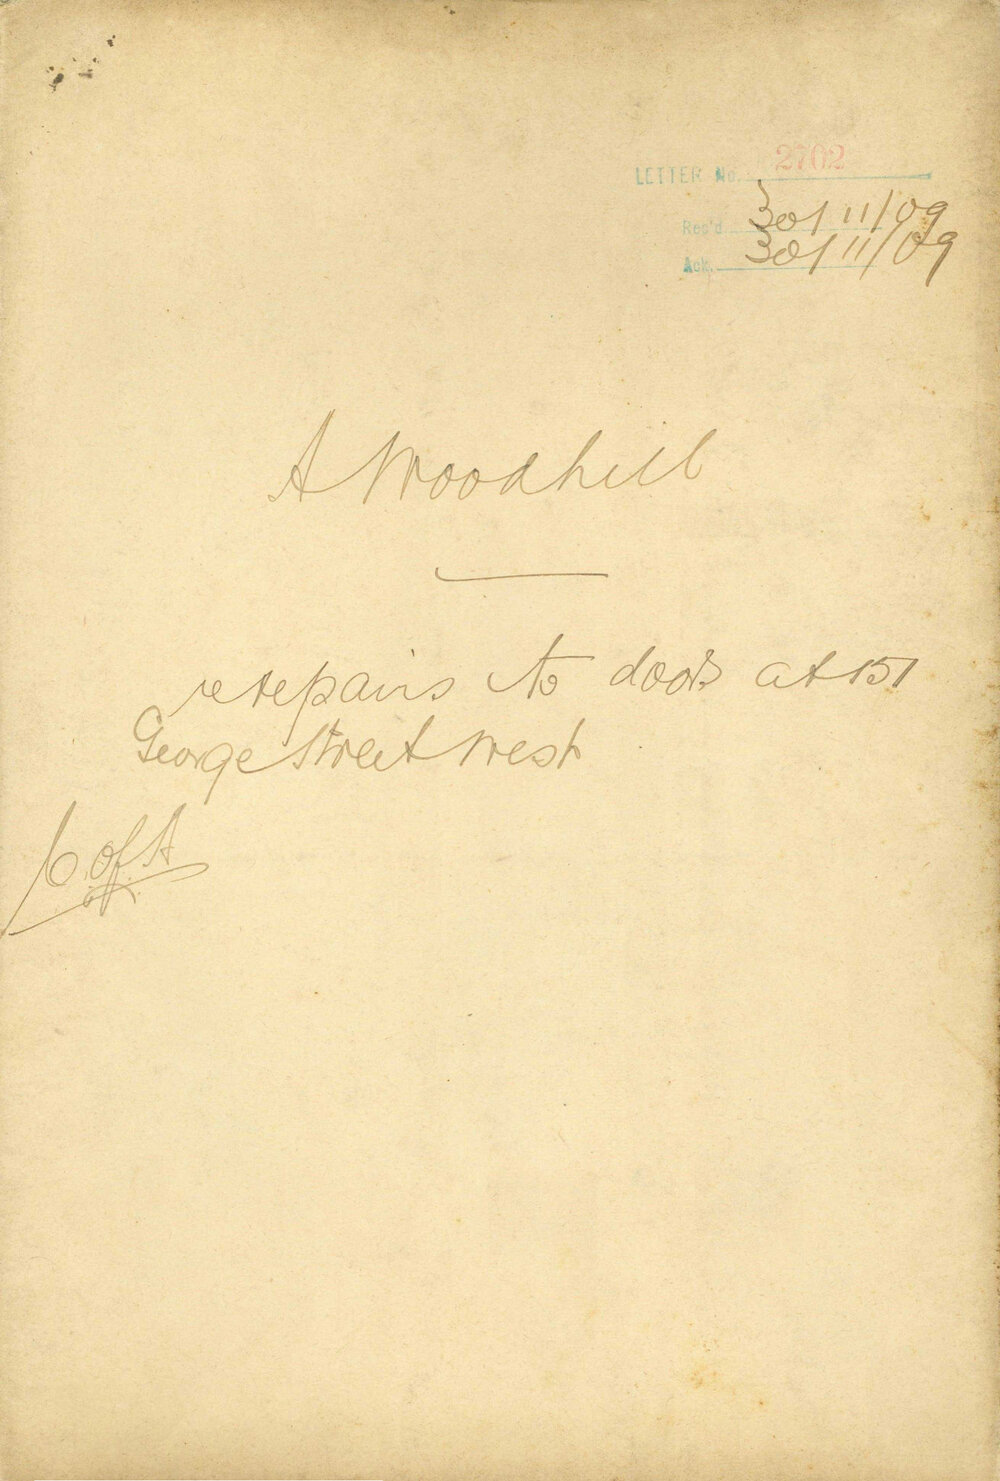 LETTER No. 2702
Rec'd 30/11/09
Ack. 30/11/09
A Woodhill
re repairs to door at 151
George Street West
C. of A